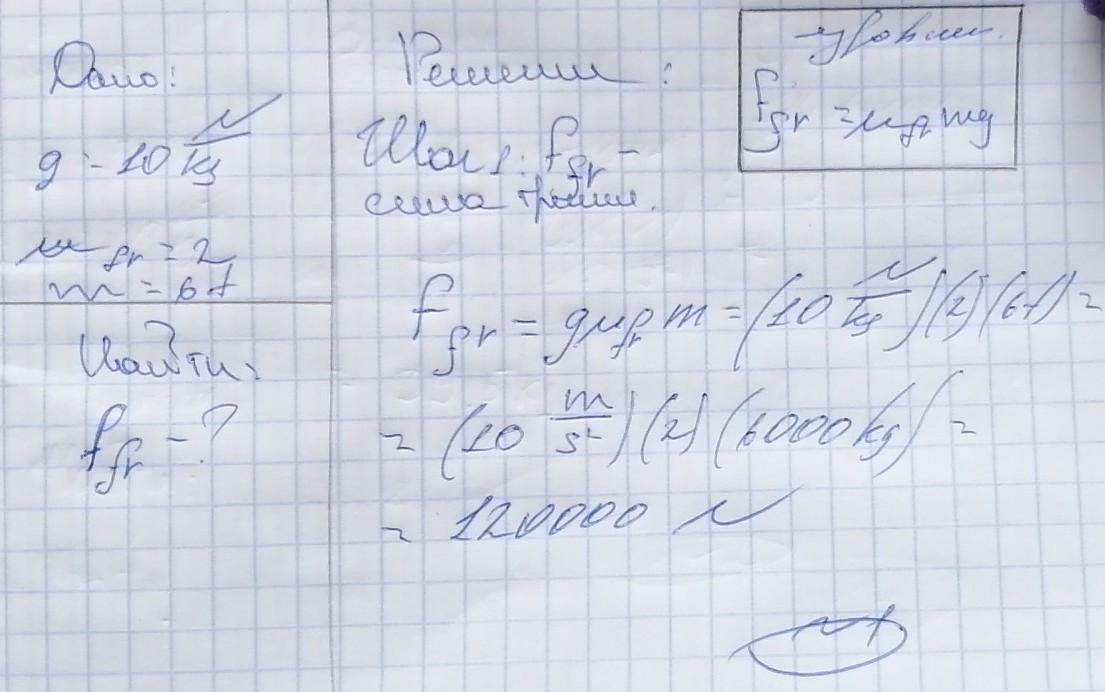 Дано:
g = 10 N/kg
μ_fr = 2
m = 6 t
Найти:
f_fr - ?
Решение:
Шаг 1: f_fr -
сила трения.
f_fr = gμ_fr m = (10 N/kg)(2)(6t) =
= (10 m/s²)(2)(6000 kg) =
= 120000 N
уравнен.
f_fr = μ_fr mg